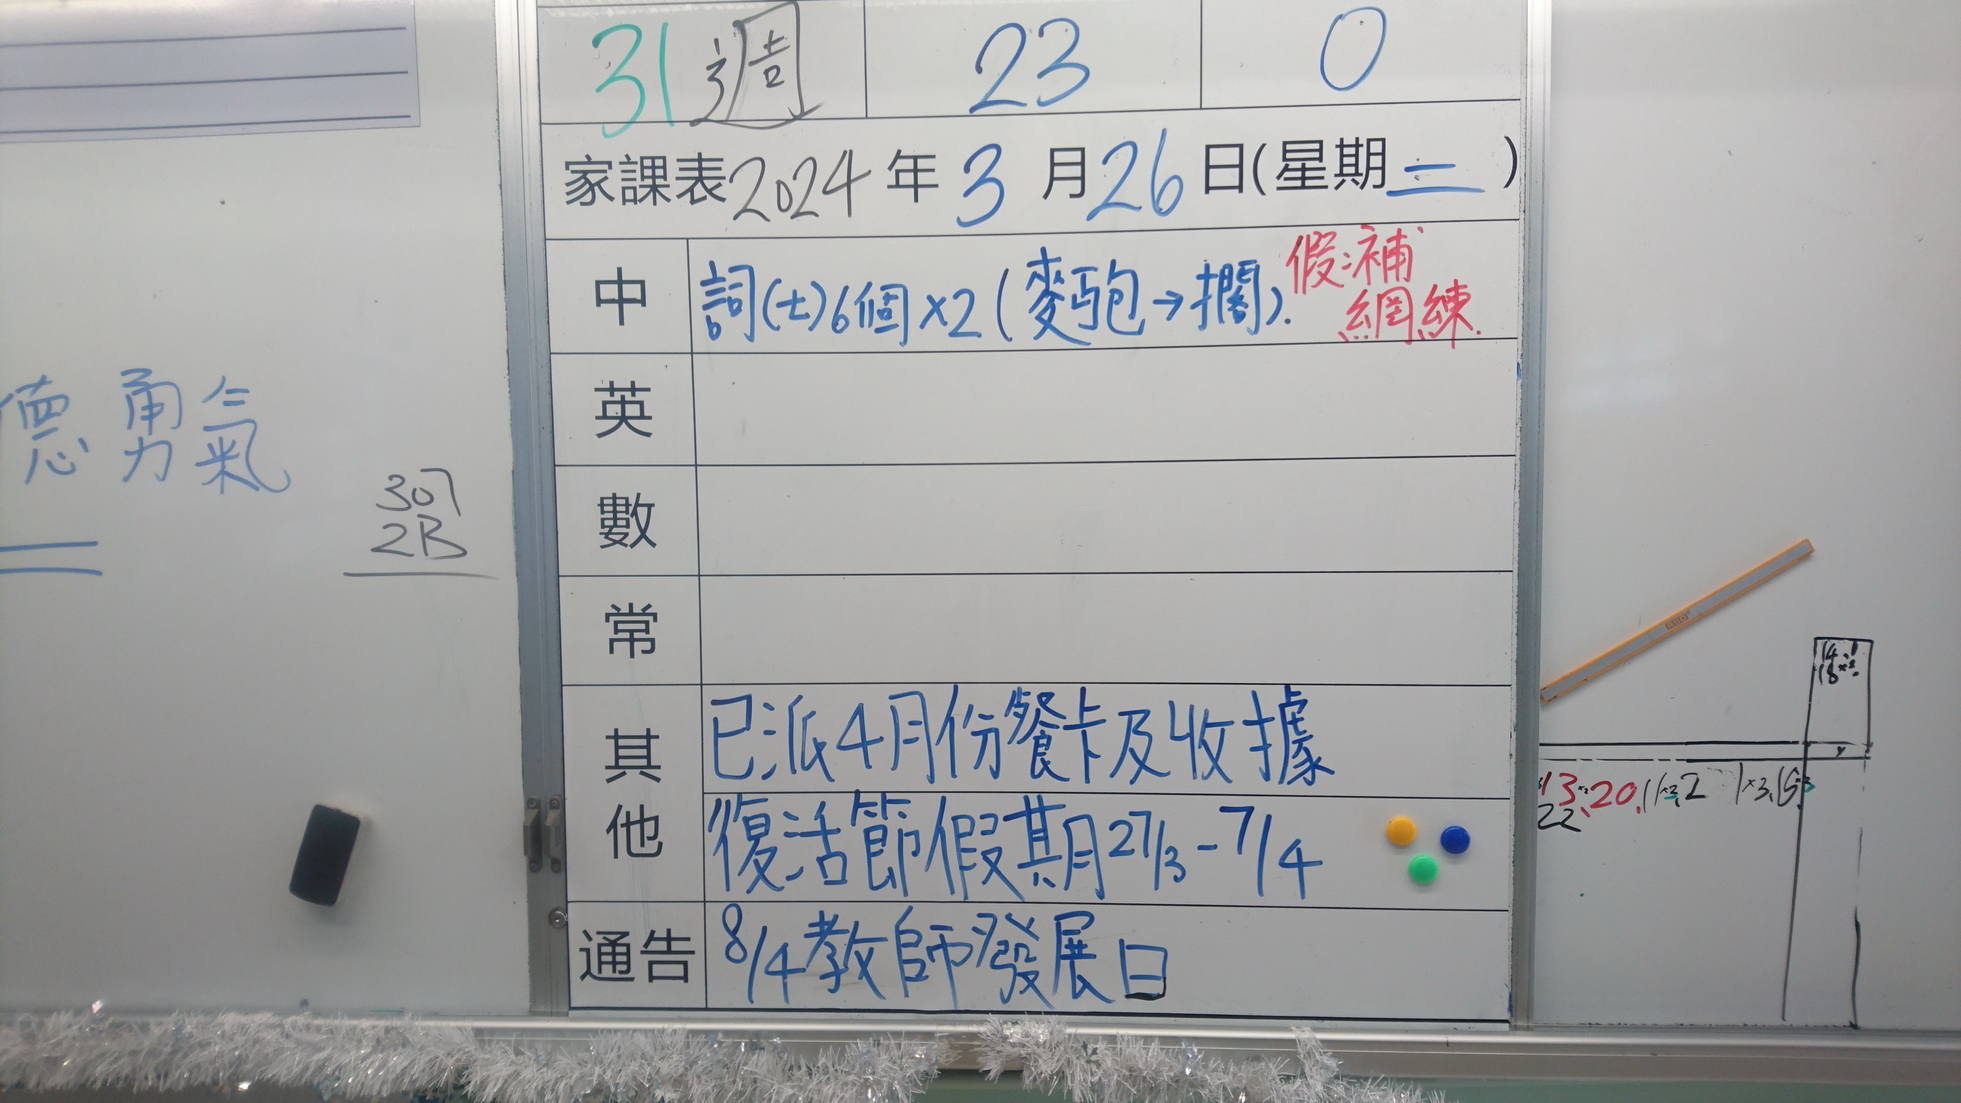 31 週 23 0
家課表 2024 年 3 月 26 日(星期二)
中 詞(七)6個×2(麥皰→擱). 假:補
網練.
英
數
常
其他 已派4月份餐卡及收據
復活節假期27/3-7/4
通告 8/4教師發展日
德 勇氣
307
2B
13
20
22